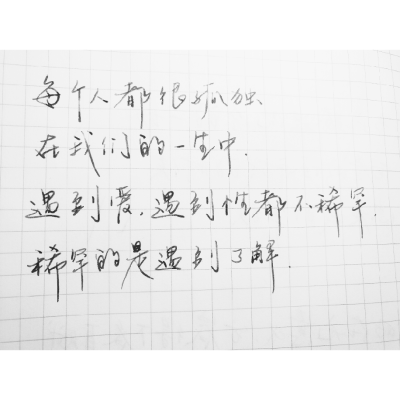 每个人都很孤独
在我们的一生中.
遇到爱,遇到性都不稀罕.
稀罕的是遇到了解.